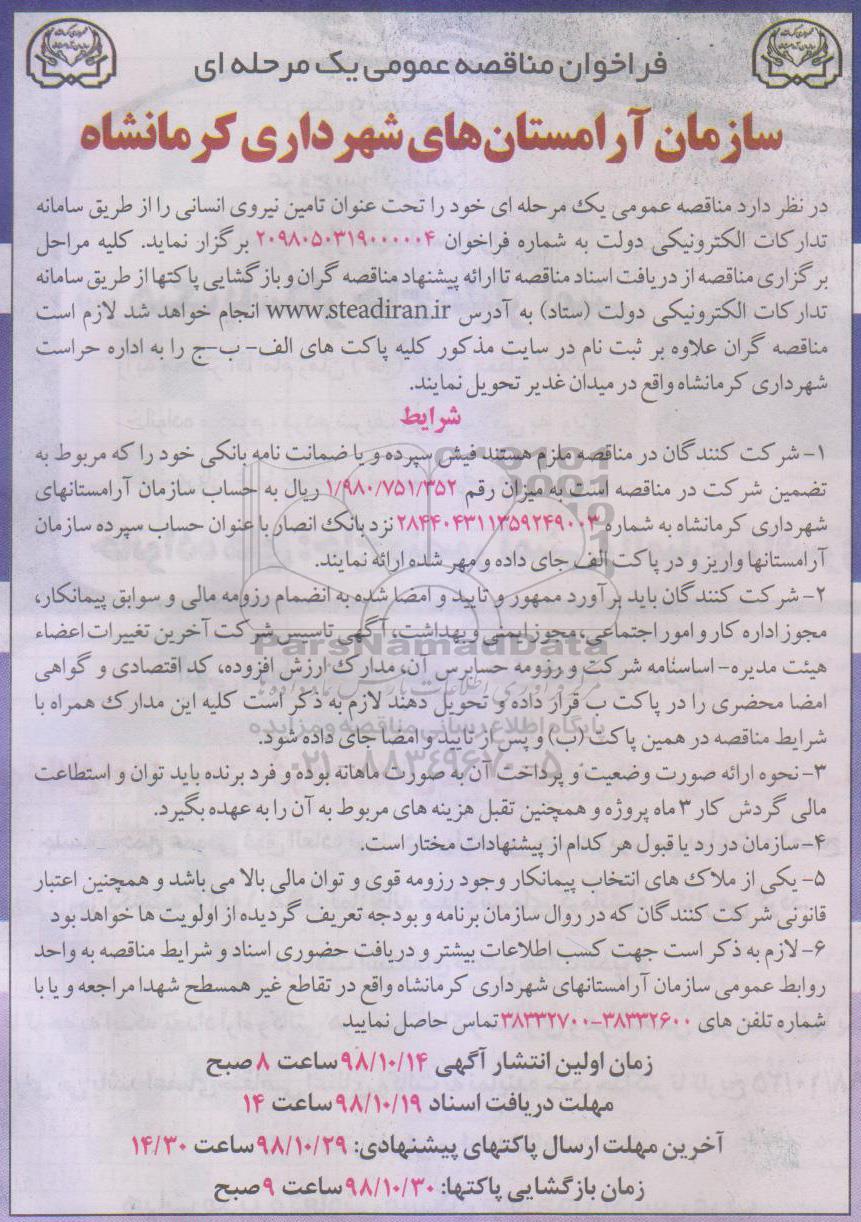 فراخوان مناقصه عمومی یک مرحله ای
سازمان آرامستان‌های شهرداری کرمانشاه
در نظر دارد مناقصه عمومی یک مرحله ای خود را تحت عنوان تامین نیروی انسانی را از طریق سامانه
تدارکات الکترونیکی دولت به شماره فراخوان ۲۰۹۸۰۵۰۳۱۹۰۰۰۰۰۴ برگزار نماید. کلیه مراحل
برگزاری مناقصه از دریافت اسناد مناقصه تا ارائه پیشنهاد مناقصه گران و بازگشایی پاکتها از طریق سامانه
تدارکات الکترونیکی دولت (ستاد) به آدرس www.steadiran.ir انجام خواهد شد لازم است
مناقصه گران علاوه بر ثبت نام در سایت مذکور کلیه پاکت های الف- ب-ج را به اداره حراست
شهرداری کرمانشاه واقع در میدان غدیر تحویل نمایند.
شرایط
۱- شرکت کنندگان در مناقصه ملزم هستند فیش سپرده و یا ضمانت نامه بانکی خود را که مربوط به
تضمین شرکت در مناقصه است به میزان رقم ۱/۹۸۰/۷۵۱/۳۵۲ ریال به حساب سازمان آرامستانهای
شهرداری کرمانشاه به شماره ۲۸۴۴۰۴۳۱۱۳۵۹۲۴۹۰۰۳ نزد بانک انصار با عنوان حساب سپرده سازمان
آرامستانها واریز و در پاکت الف جای داده و مهر شده ارائه نمایند.
۲- شرکت کنندگان باید برآورد ممهور و تایید و امضا شده به انضمام رزومه مالی و سوابق پیمانکار،
مجوز اداره کار و امور اجتماعی، مجوز ایمنی و بهداشت، آگهی تاسیس شرکت آخرین تغییرات اعضاء
هیئت مدیره- اساسنامه شرکت و رزومه حسابرس آن، مدارک ارزش افزوده، کد اقتصادی و گواهی
امضا محضری را در پاکت ب قرار داده و تحویل دهند لازم به ذکر است کلیه این مدارک همراه با
شرایط مناقصه در همین پاکت (ب) و پس از تایید و امضا جای داده شود.
۳- نحوه ارائه صورت وضعیت و پرداخت آن به صورت ماهانه بوده و فرد برنده باید توان و استطاعت
مالی گردش کار ۳ ماه پروژه و همچنین تقبل هزینه های مربوط به آن را به عهده بگیرد.
۴- سازمان در رد یا قبول هر کدام از پیشنهادات مختار است.
۵- یکی از ملاک های انتخاب پیمانکار وجود رزومه قوی و توان مالی بالا می باشد و همچنین اعتبار
قانونی شرکت کنندگان که در روال سازمان برنامه و بودجه تعریف گردیده از اولویت ها خواهد بود
۶- لازم به ذکر است جهت کسب اطلاعات بیشتر و دریافت حضوری اسناد و شرایط مناقصه به واحد
روابط عمومی سازمان آرامستانهای شهرداری کرمانشاه واقع در تقاطع غیر همسطح شهدا مراجعه و یا با
شماره تلفن های ۳۸۳۳۲۶۰۰-۳۸۳۳۲۷۰۰ تماس حاصل نمایید
زمان اولین انتشار آگهی ۹۸/۱۰/۱۴ ساعت ۸ صبح
مهلت دریافت اسناد ۹۸/۱۰/۱۹ ساعت ۱۴
آخرین مهلت ارسال پاکتهای پیشنهادی: ۹۸/۱۰/۲۹ ساعت ۱۴/۳۰
زمان بازگشایی پاکتها: ۹۸/۱۰/۳۰ ساعت ۹ صبح
ParsNamadData
پایگاه اطلاع رسانی مناقصه و مزایده
۰۲۱-۸۸۳۴۹۶۷۰-۵